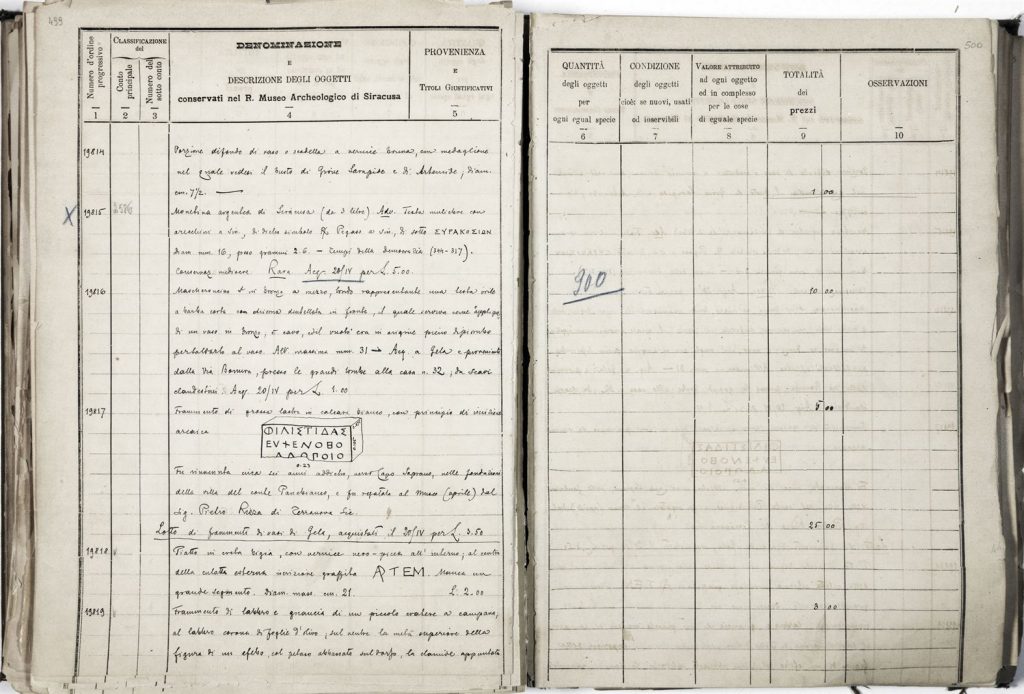 499
Numero d'ordine progressivo
CLASSIFICAZIONE del
Conto principale
Numero del sotto conto
DENOMINAZIONE
E
DESCRIZIONE DEGLI OGGETTI
conservati nel R. Museo Archeologico di Siracusa
PROVENIENZA
E
TITOLI GIUSTIFICATIVI
1 2 3 4 5
19814 Porzione di fondo di vaso o scodella a vernice bruna, con medaglione
nel quale vedesi il busto di Giove Sarapide e di ; diam.
cm. 7½
X 19815 Monetina argentea di Siracusa (da 3 litre). Adv. Testa muliebre con
orecchini a sin., di dietro simbolo R Pegaso a sin., di sotto ΣΥΡΑΚΟΣΙΩΝ
diam mm. 16, peso grammi 2.6 – Tempi della democrazia (344-317).
Conservaz. mediocre. Rara. Acq. 20/IV per L. 5.00
19816 Mascheroncino in bronzo a mezzo tondo rappresentante una testa virile
a barba corta con chioma in fronte, il quale serviva come applique
di un vaso in bronzo; è cavo, ed il vuoto era in origine pieno di piombo
per saldarlo al vaso. Alt. massima mm. 31 – Acq. a Gela e proveniente
dalla Via Bonura, presso le grandi tombe alla casa n. 32; da scavi
clandestini. Acq. 20/IV per L. 1.00
19817 Frammento di grossa lastra in calcare bianco, con principio di iscrizione
arcaica
ΦΙΛΙΣΤΙΔΑΣ
ΕΥ+ΕΝΟΒΟ
0.23
Fu rinvenuta circa sei anni addietro, verso Capo Soprano, nelle fondazioni
della villa del conte Panebianco, e fu regalata al Museo (aprile) dal
Sig. Pietro Rizza di Terranova Sic.
Lotto di frammenti di vasi di Gela, acquistati il 20/IV per L. 3.50
19818 Piatto in creta bigia, con vernice nero-picea all'interno; al centro
della culatta esterna iscrizione graffita ARTEM. Manca un
grande segmento. Diam. mass. cm. 21. L. 2.00
19819 Frammento di labbro e guancia di un piccolo cratere a campana,
al labbro corona di foglie d'olivo; sul ventre la metà superiore della
figura di un efebo, col petaso abbassato sul dorso, la clamide appuntata
500
QUANTITÀ
degli oggetti
per
ogni egual specie
CONDIZIONE
degli oggetti
cioè: se nuovi, usati
od inservibili
VALORE ATTRIBUITO
ad ogni oggetto
ed in complesso
per le cose
di eguale specie
TOTALITÀ
dei
prezzi
OSSERVAZIONI
6 7 8 9 10
1 00
900
10 00
5 00
25 00
3 00